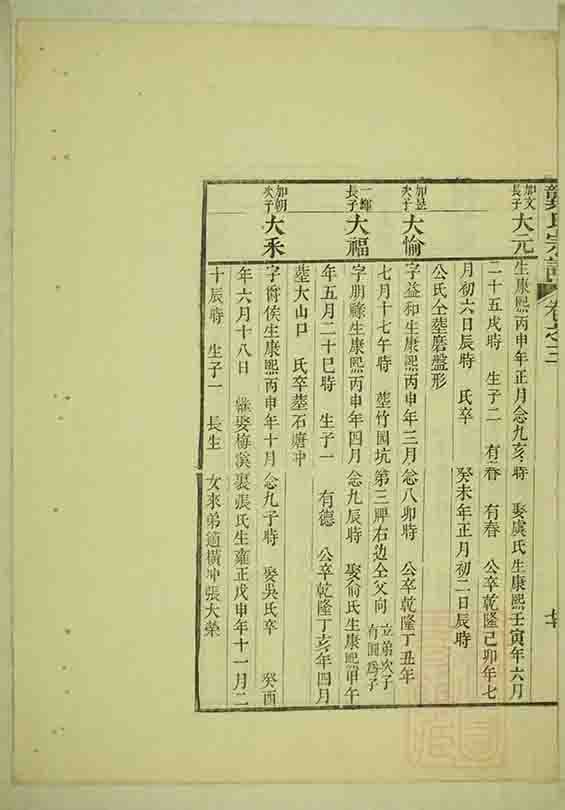 龔氏宗譜 卷之三
加文長子 大元 生康熙丙申年正月念九亥時 娶虞氏生康熙壬寅年六月
二十五戌時 生子二 有春 有春 公卒乾隆己卯年七
月初六日辰時 氏卒 癸未年正月初二日辰時
公氏仝塟磨盤形
加昱次子 大愉 字益和生康熙丙申年三月念八卯時 公卒乾隆丁丑年
七月十七午時 塟竹園坑第三牌右边仝父向 立弟次子有圓為子
一煇長子 大福 字朋祿生康熙丙申年四月念九辰時 娶俞氏生康熙甲午
年五月二十巳時 生子一 有德 公卒乾隆丁亥年四月
塟大山口 氏卒塟石塘冲
加朝次子 大禾 字爵侯生康熙丙申年十月念九子時 娶吳氏卒 癸酉
年六月十八日 繼娶梅溪裏張氏生雍正戊申年十一月二
十辰時 生子一 長生 女來弟適橫冲張大榮